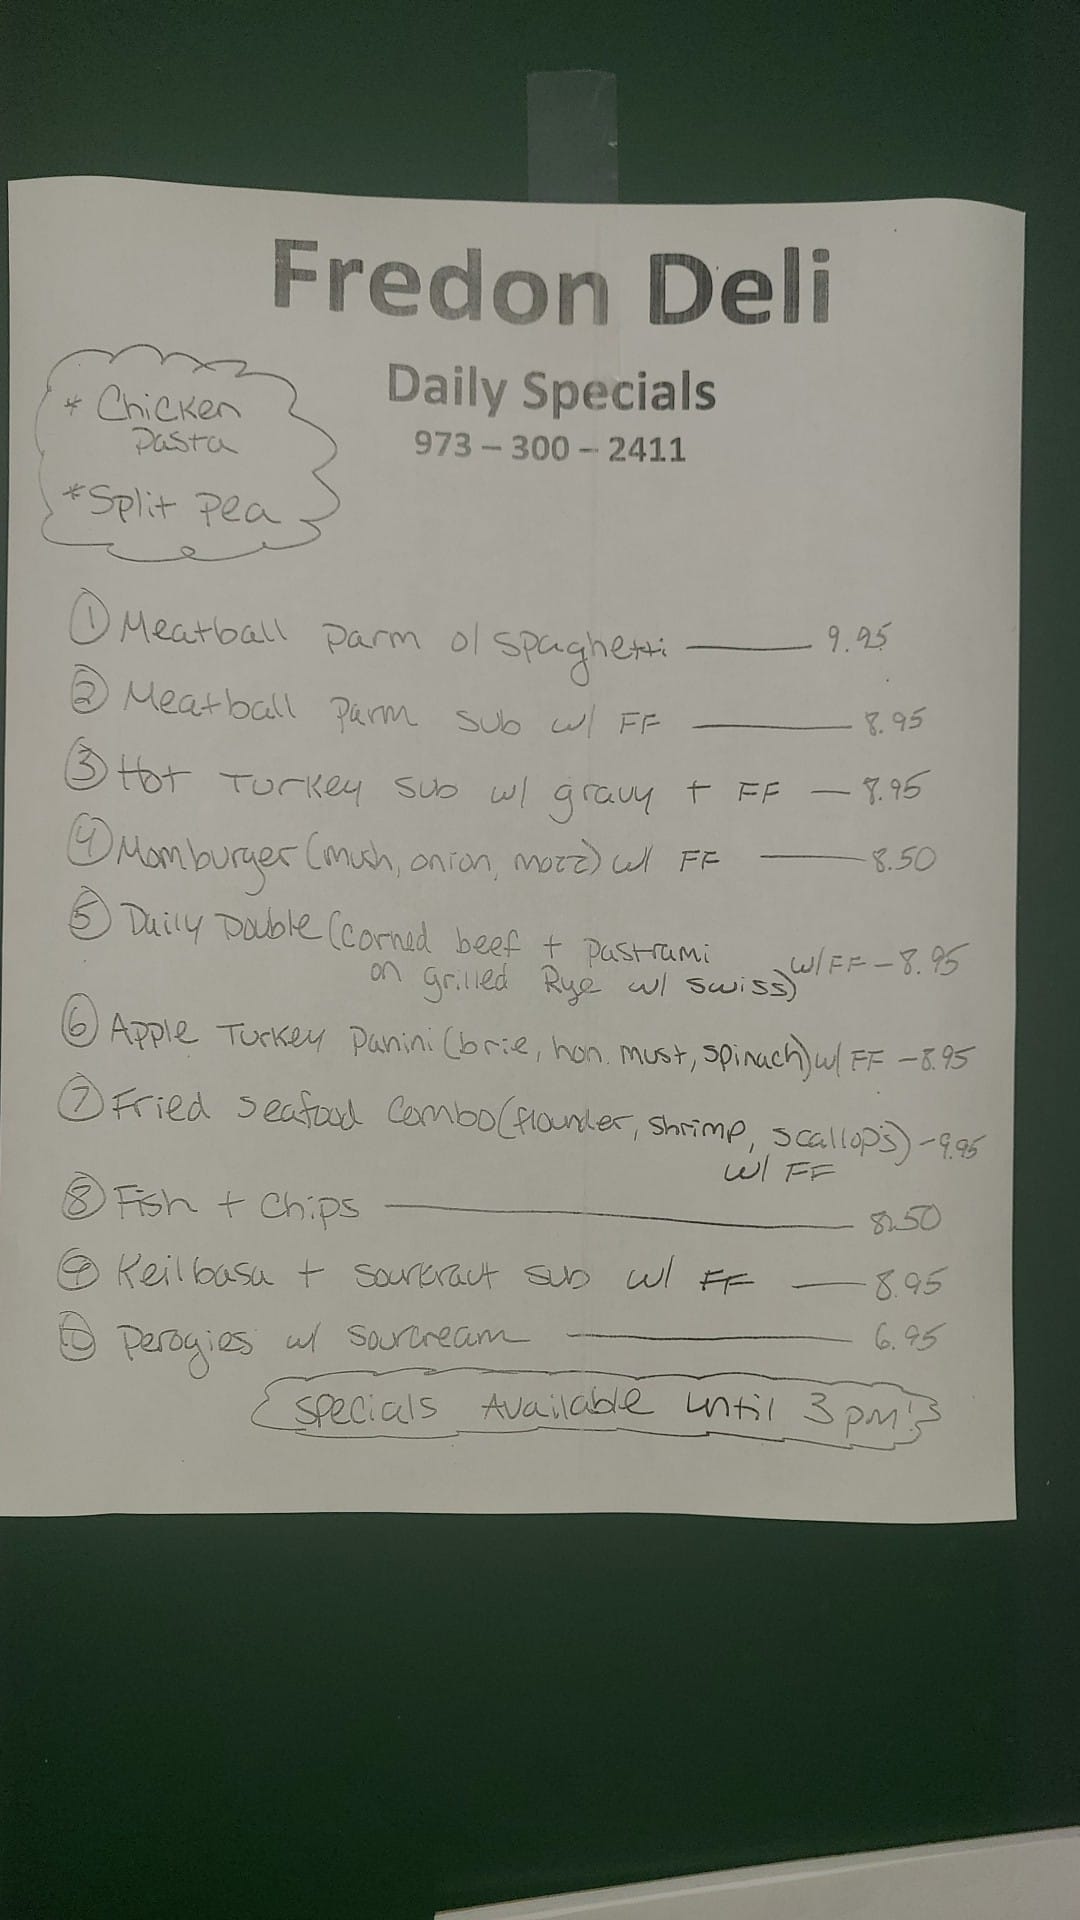 Fredon Deli
Daily Specials
973 – 300 – 2411
* Chicken
Pasta
* Split Pea
① Meatball Parm o/ spaghetti — 9.95
② Meatball Parm sub w/ FF — 8.95
③ Hot Turkey sub w/ gravy + FF — 8.95
④ Momburger (mush, onion, mozz) w/ FF — 8.50
⑤ Daily Double (corned beef + pastrami
on grilled Rye w/ swiss) w/ FF – 8.95
⑥ Apple Turkey Panini (brie, hon. must, spinach) w/ FF – 8.95
⑦ Fried Seafood Combo (flounder, shrimp, scallops) – 9.95
w/ FF
⑧ Fish + Chips — 8.50
⑨ Keilbasa + sourkraut sub w/ FF — 8.95
⑩ Perogies w/ sourcream — 6.95
Specials Available until 3pm!